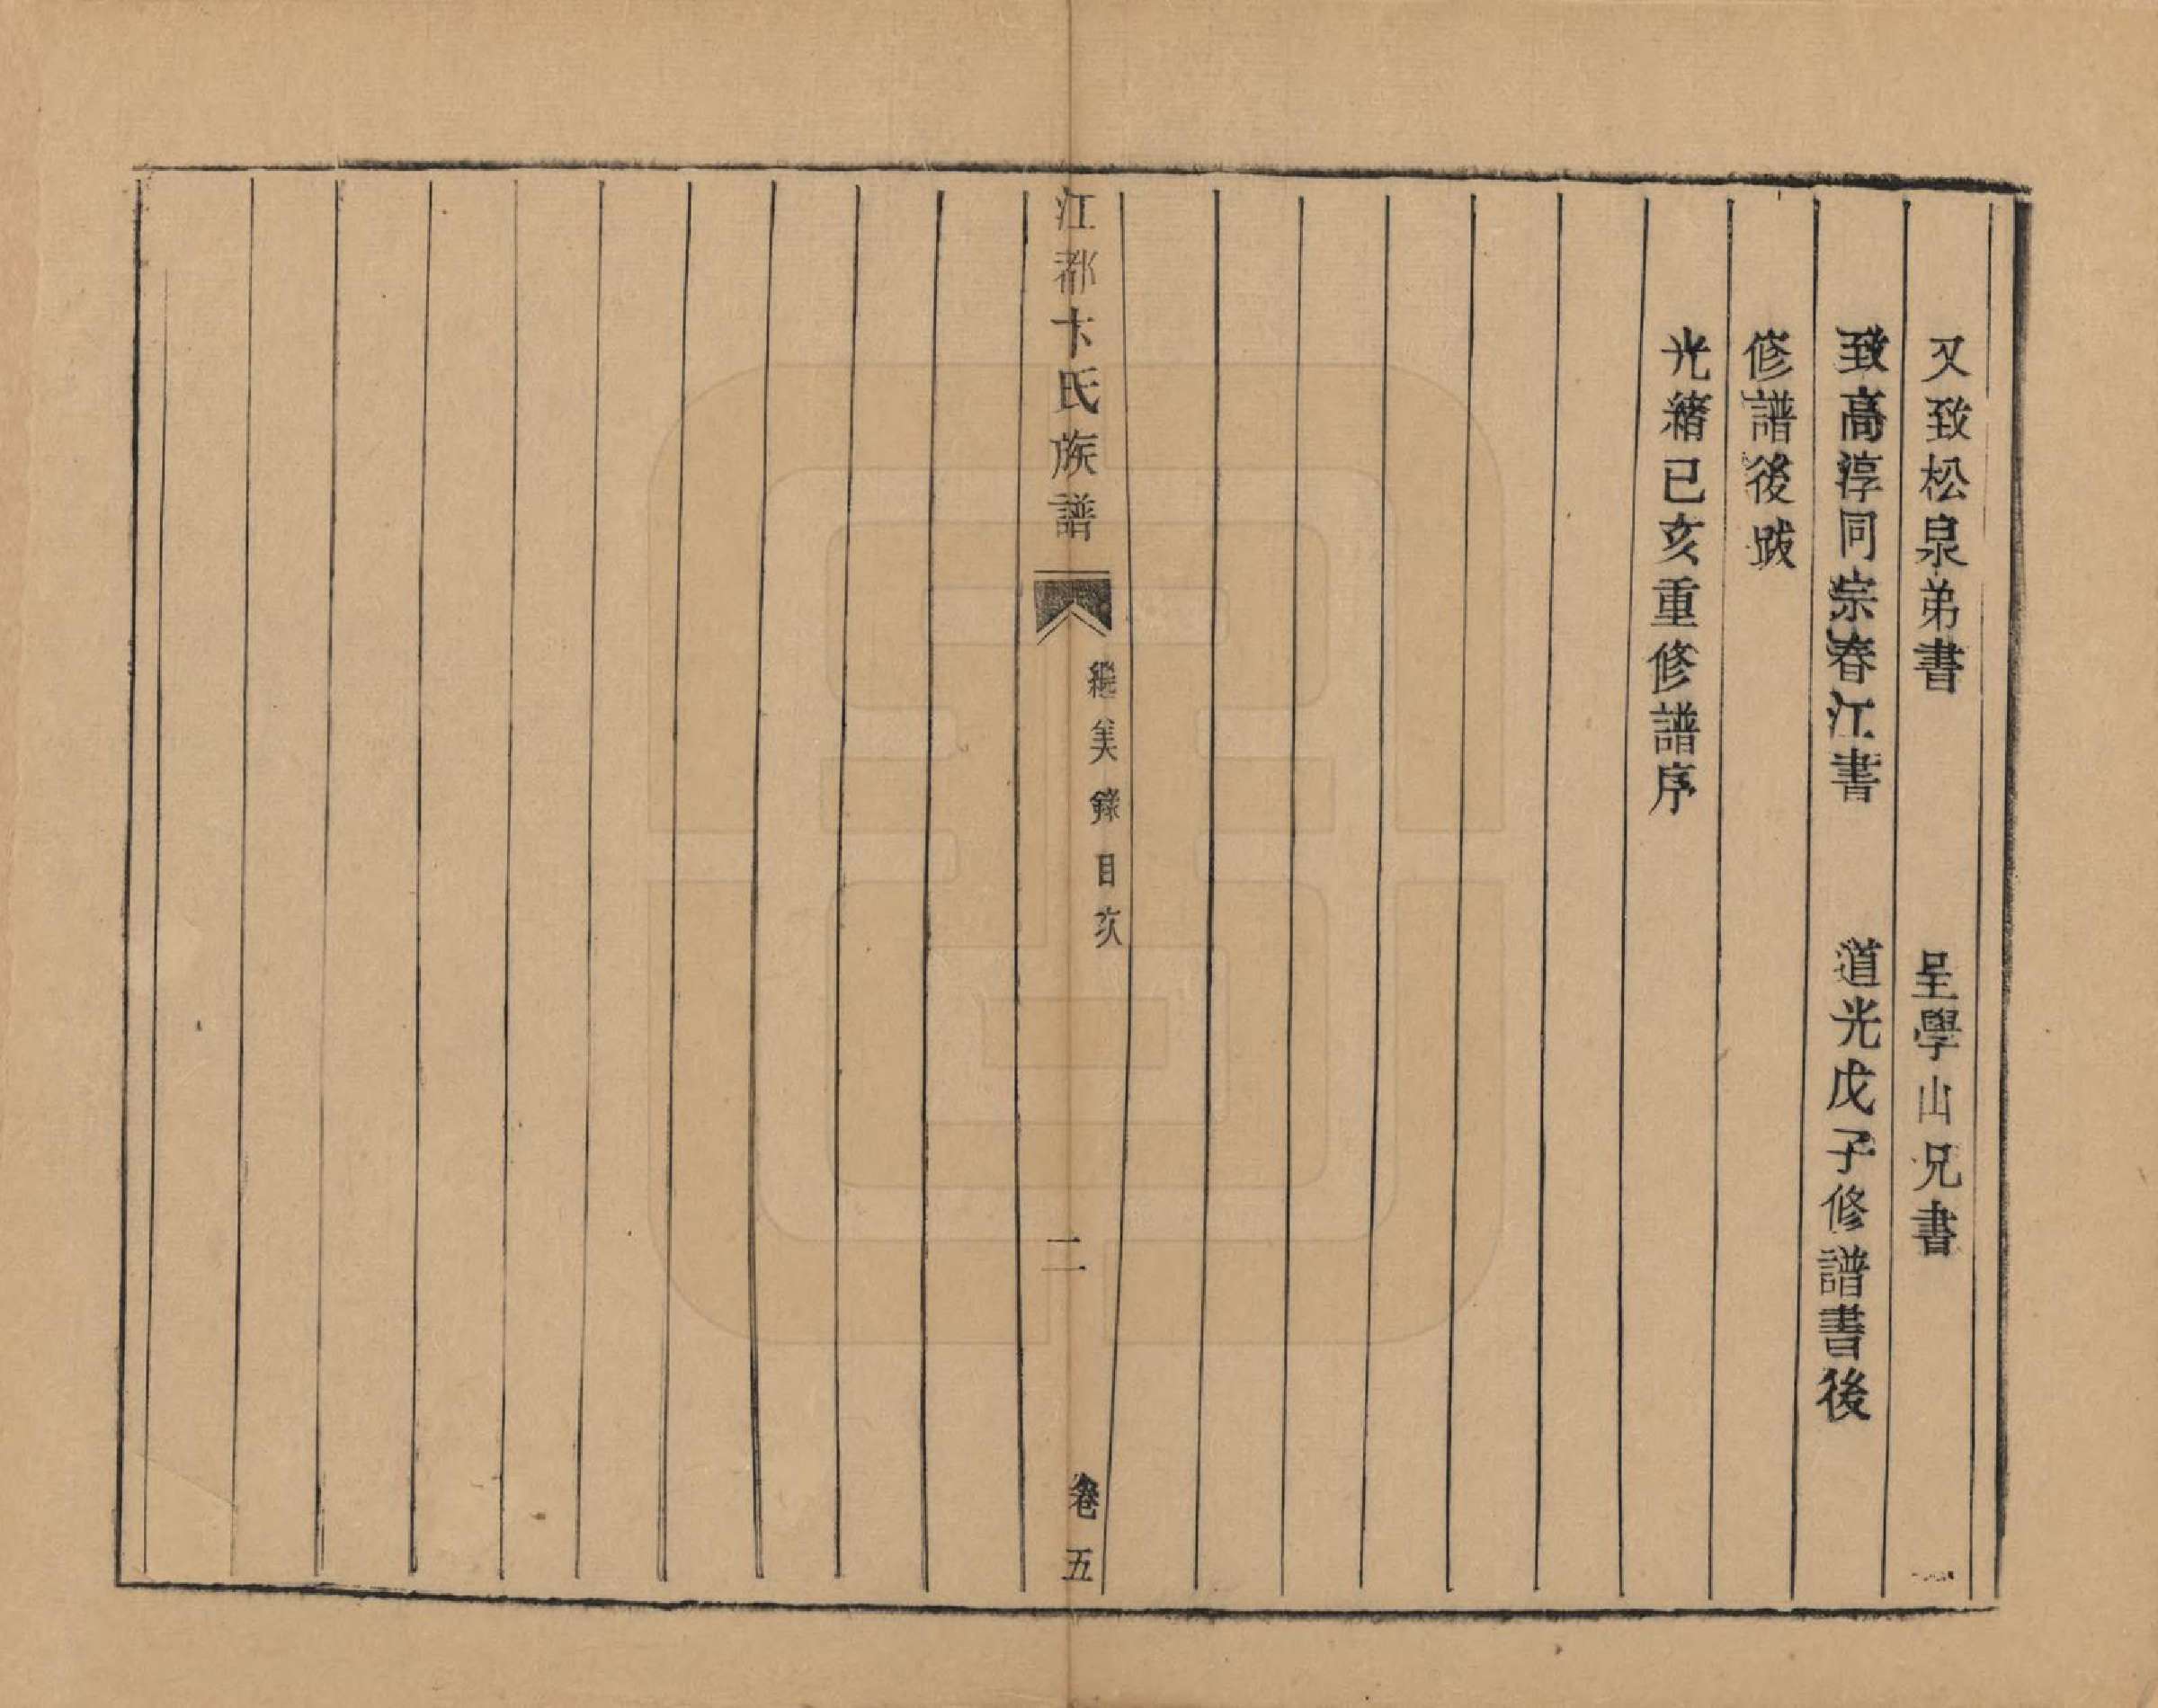 又致松泉弟書　呈學山兄書
致高淳同宗春江書　道光戊子修譜書後
修譜後跋
光緒已亥重修譜序
江都卞氏族譜　繼美錄目次　二　卷五